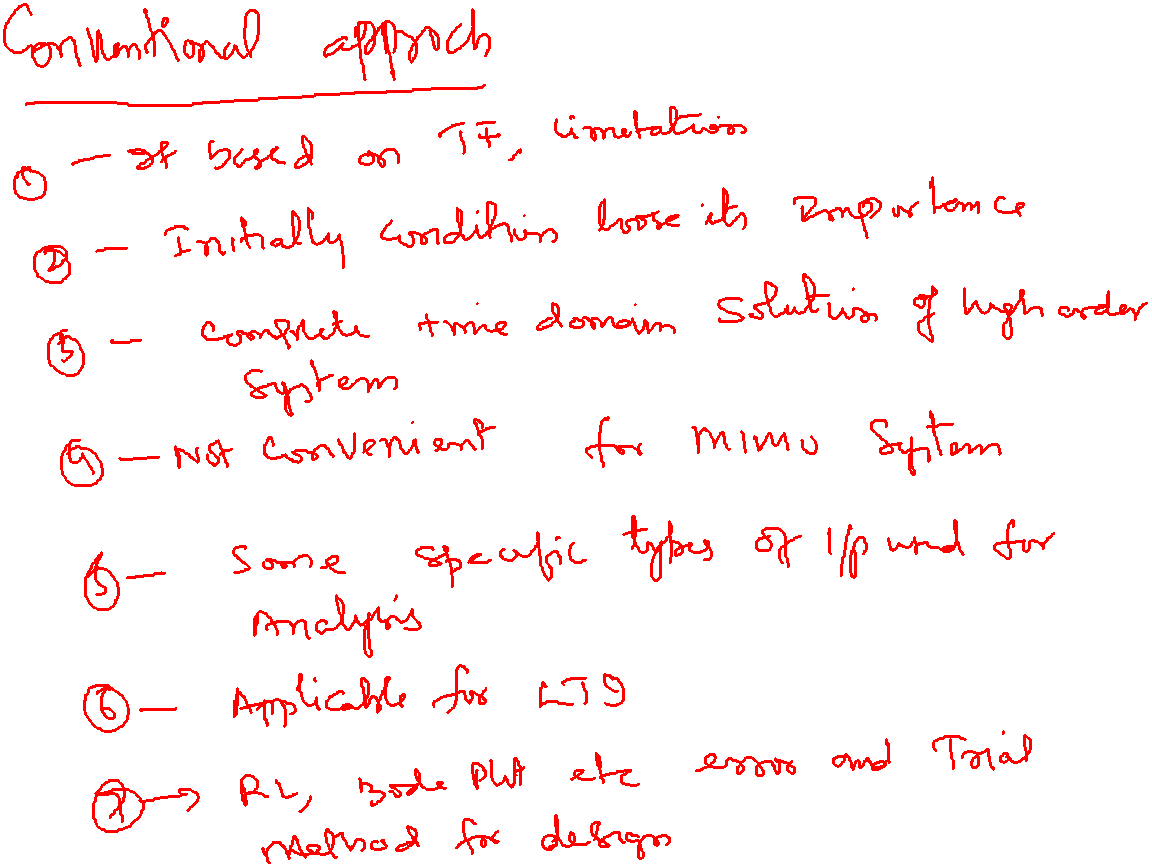 Conventional approch
① - It based on TF, Limitations
② - Initially conditions loose its Importance
③ - Complete time domain Solution of high order
System
④ - Not Convenient for MIMO System
⑤ - Some specific types of I/p used for
Analysis
⑥ - Applicable for LTI
⑦ → RL, Bode Plot etc error and Trial
Method for design